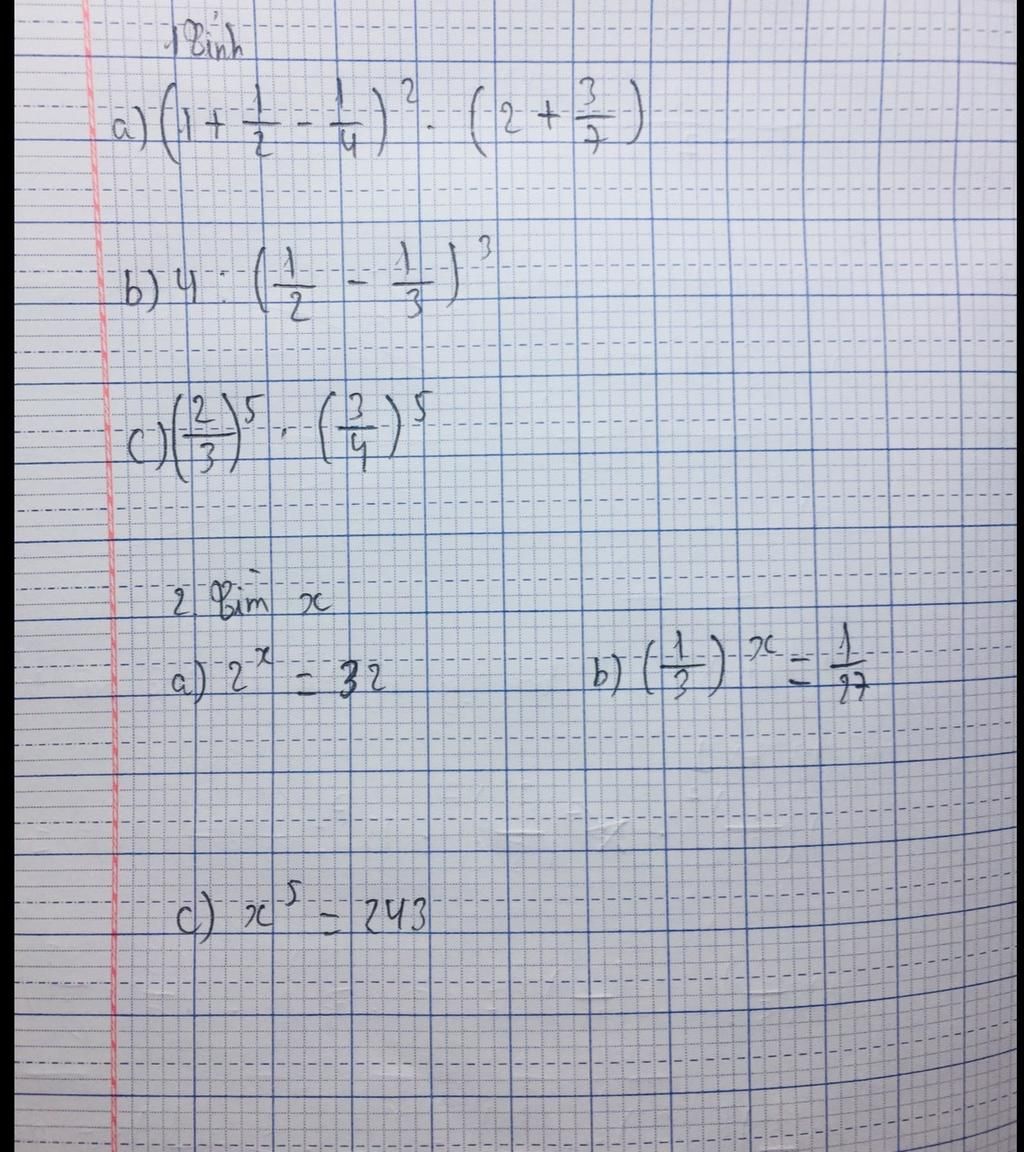 1 Tính
a) (1 + 1/2 - 1/4)² . (2 + 3/7)
b) 4 : (1/2 - 1/3)³
c) (2/3)⁵ . (3/4)⁵
2. Tìm x
a) 2ˣ = 32 b) (1/3)ˣ = 1/27
c) x⁵ = 243